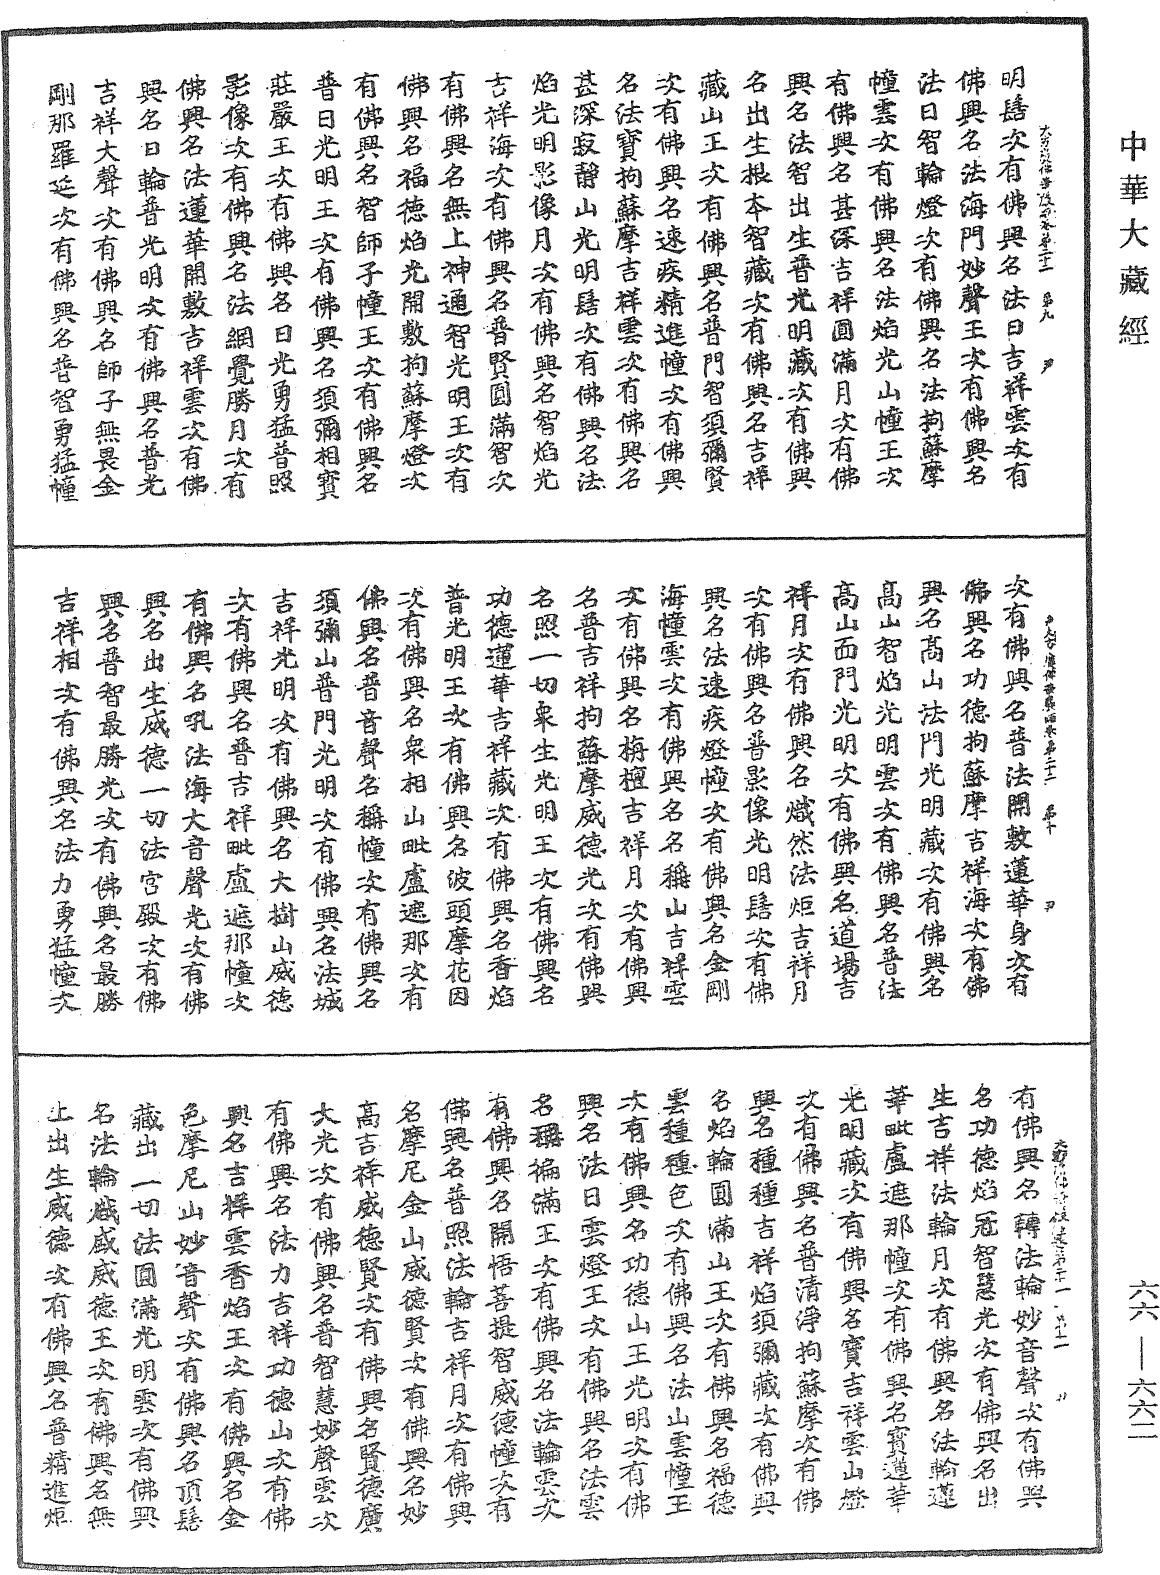 中華大藏經
明髻次有佛興名法日吉祥雲次有
佛興名法海門妙聲王次有佛興名
法日智輪燈次有佛興名法拘蘇摩
幢雲次有佛興名法焰光山幢王次
有佛興名甚深吉祥圓滿月次有佛
興名法智出生普光明藏次有佛興
名出生根本智藏次有佛興名吉祥
藏山王次有佛興名普門智須彌賢
次有佛興名速疾精進幢次有佛興
名法寶拘蘇摩吉祥雲次有佛興名
甚深寂靜山光明髻次有佛興名法
焰光明影像月次有佛興名智焰光
吉祥海次有佛興名普賢圓滿智次
有佛興名無上神通智光明王次有
佛興名福德焰光開敷拘蘇摩燈次
有佛興名智師子幢王次有佛興名
普日光明王次有佛興名須彌相寶
莊嚴王次有佛興名日光勇猛普照
影像次有佛興名法網覺勝月次有
佛興名法蓮華開敷吉祥雲次有佛
興名日輪普光明次有佛興名普光
吉祥大聲次有佛興名師子無畏金
剛那羅延次有佛興名普智勇猛幢
次有佛興名普法開敷蓮華身次有
佛興名功德拘蘇摩吉祥海次有佛
興名高山法門光明藏次有佛興名
高山智焰光明雲次有佛興名普法
高山面門光明次有佛興名道場吉
祥月次有佛興名熾然法炬吉祥月
次有佛興名普影像光明髻次有佛
興名法速疾燈幢次有佛興名金剛
海幢雲次有佛興名名稱山吉祥雲
次有佛興名栴檀吉祥月次有佛興
名普吉祥拘蘇摩威德光次有佛興
名照一切衆生光明王次有佛興名
功德蓮華吉祥藏次有佛興名香焰
普光明王次有佛興名波頭摩花因
次有佛興名衆相山毗盧遮那次有
佛興名普音聲名稱幢次有佛興名
須彌山普門光明次有佛興名法城
吉祥光明次有佛興名大樹山威德
次有佛興名普吉祥毗盧遮那幢次
有佛興名吼法海大音聲光次有佛
興名出生威德一切法宮殿次有佛
興名普智最勝光次有佛興名最勝
吉祥相次有佛興名法力勇猛幢次
有佛興名轉法輪妙音聲次有佛興
名功德焰冠智慧光次有佛興名出
生吉祥法輪月次有佛興名法輪蓮
華毗盧遮那幢次有佛興名寶蓮華
光明藏次有佛興名寶吉祥雲山燈
次有佛興名普清淨拘蘇摩次有佛
興名種種吉祥焰須彌藏次有佛興
名焰輪圓滿山王次有佛興名福德
雲種種色次有佛興名法山雲幢王
次有佛興名功德山王光明次有佛
興名法日雲燈王次有佛興名法雲
名稱徧滿王次有佛興名法輪雲次
有佛興名開悟菩提智威德幢次有
佛興名普照法輪吉祥月次有佛興
名摩尼金山威德賢次有佛興名妙
高吉祥威德賢次有佛興名賢德廣
大光次有佛興名普智慧妙聲雲次
有佛興名法力吉祥功德山次有佛
興名吉祥雲香焰王次有佛興名金
色摩尼山妙音聲次有佛興名頂髻
藏出一切法圓滿光明雲次有佛興
名法輪熾盛威德王次有佛興名無
上出生威德次有佛興名普精進炬
六六—六六二